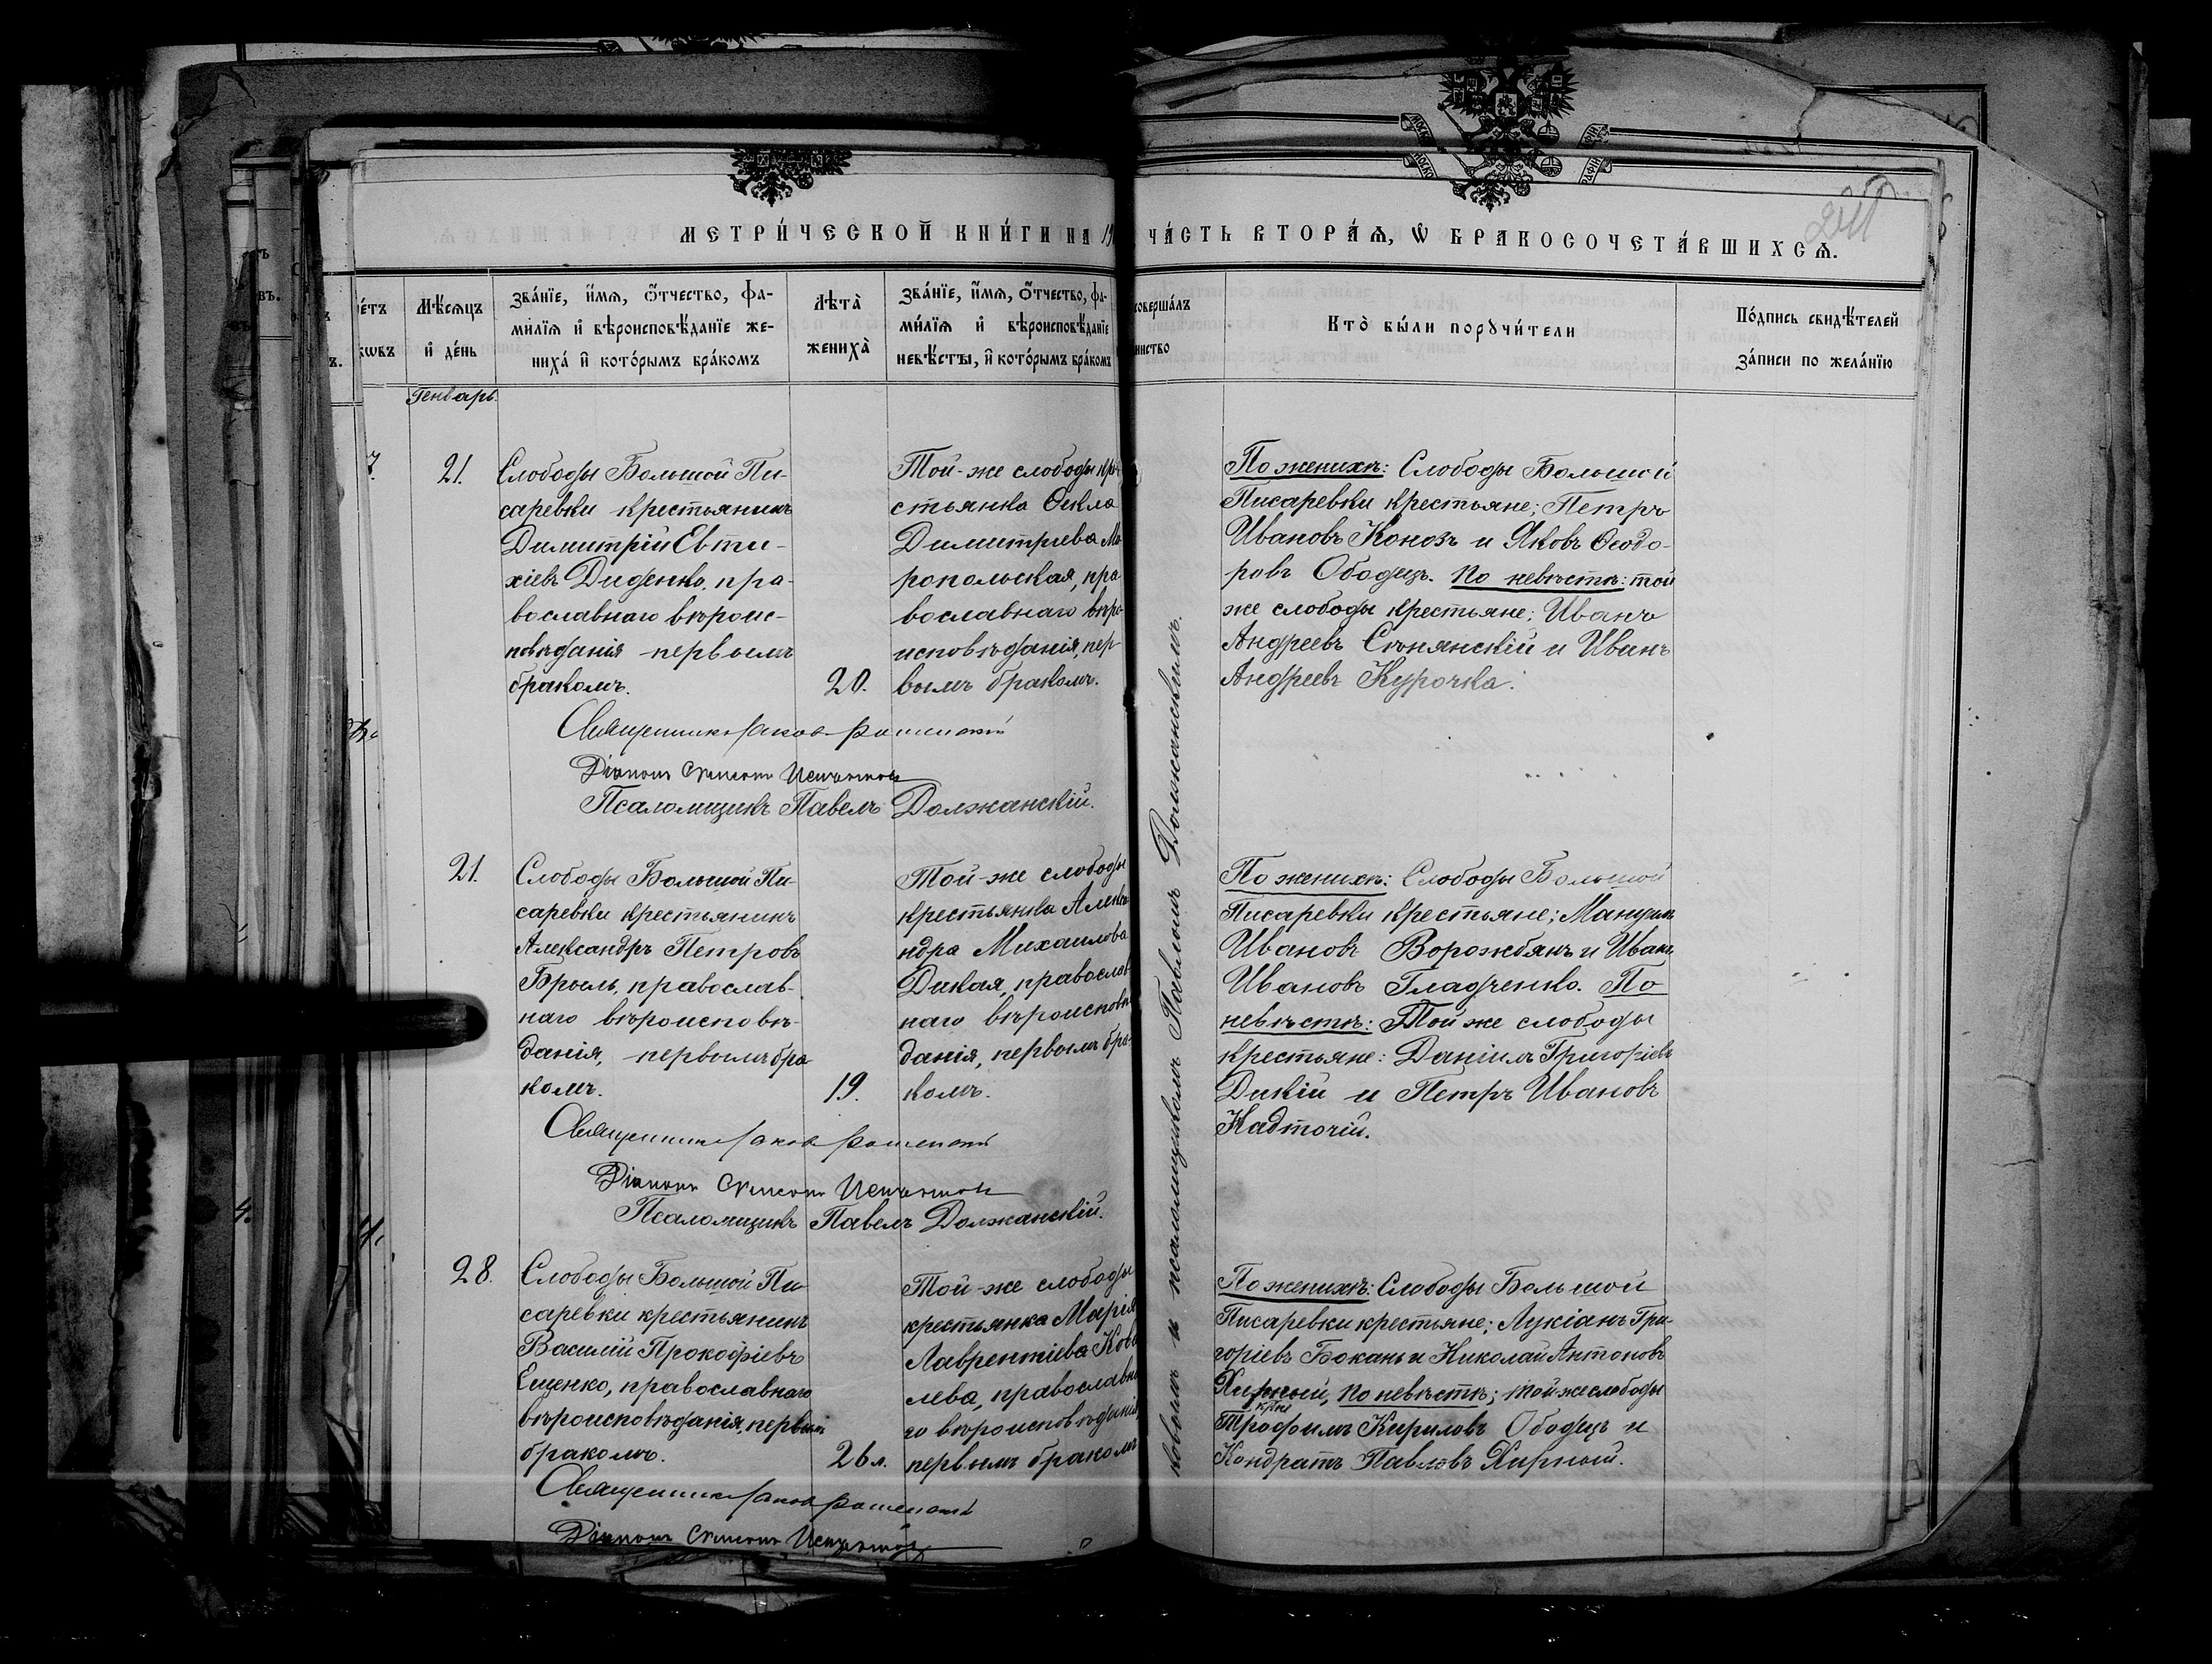 МЕТРИ́ЧЕСКОЙ КНИ́ГИ НА 19
ЧА́СТЬ ВТОРА́Ѧ, Ѡ БРАКОСОЧЕТА́ВШИХСѦ.
Мѣ́сѧцъ
и҆ де́нь
Зва́нїе, и҆́мѧ, ѻ҆́тчество, фа-
ми́лїѧ и҆ вѣроисповѣ́данїе же-
ниха̀ и҆ кото́рымъ бра́комъ
Лѣта̀
жениха̀
Зва́нїе, и҆́мѧ, ѻ҆́тчество, фа-
ми́лїѧ и҆ вѣроисповѣ́данїе
невѣ́сты, и҆ кото́рымъ бра́комъ
совершáлъ
Кто̀ бы́ли порꙋчи́тели
По́дпись свидѣ́телей
за́писи по жела́нїю
Генварь.
7.
21.
Слободы Большой Пи-
саревки крестьянинъ
Димитрій Евти-
хіевъ Диденко, пра-
вославнаго вѣроис-
повѣданія первымъ
бракомъ.
20.
Той-же слободы кре-
стьянка Ѳекла
Димитриева Ми-
ропольская, пра
вославнаго вѣро
исповѣданія, пер-
вымъ бракомъ.
По женихѣ: Слободы Большой
Писаревки крестьяне; Петръ
Ивановъ Конозъ и Яковъ Ѳеодо-
ровъ Ободецъ. По невѣстѣ: той
же слободы крестьяне; Иванъ
Андреевъ Сѣнянскій и Иванъ
Андреевъ Курочка.
Священникъ Іаковъ
Діаконъ Симеонъ
Псаломщикъ Павелъ Должанскій.
21.
Слободы Большой Пи-
саревки крестьянинъ
Александръ Петровъ
Брыль, православ-
наго вѣроисповѣ-
данія, первымъ бра
комъ.
19.
Той-же слободы
крестьянка Алекса
ндра Михаилова
Дикая, православ
наго вѣроисповѣ
данія, первымъ бра-
комъ.
По женихѣ: Слободы Большой
Писаревки крестьяне; Мануилъ
Ивановъ Ворожбянъ и Иванъ
Ивановъ Гладченко. По
невѣстѣ: Той же слободы
крестьяне: Даніилъ Григоріевъ
Дикій и Петръ Ивановъ
Кадточій.
Священникъ Іаковъ
Діаконъ Симеонъ
Псаломщикъ Павелъ Должанскій.
28.
Слободы Большой Пи
саревки крестьянинъ
Василій Прокофіевъ
Ещенко, православнаго
вѣроисповѣданія, первымъ
бракомъ.
26 л.
Той-же слободы
крестьянка Марія
Лаврентіева Кова
лева, православна
го вѣроисповѣданія,
первымъ бракомъ
По женихѣ: Слободы Большой
Писаревки крестьяне; Лукіанъ Гри-
горіевъ Бокань и Николай Антоновъ
Хирный, по невѣстѣ; той же слободы
кр-не
Трофимъ Кириловъ Ободецъ и
Кондратъ Павловъ Хирный.
Священникъ Іаковъ
Діаконъ Симеонъ
ковымъ и псаломщикомъ Павломъ Должанскимъ.